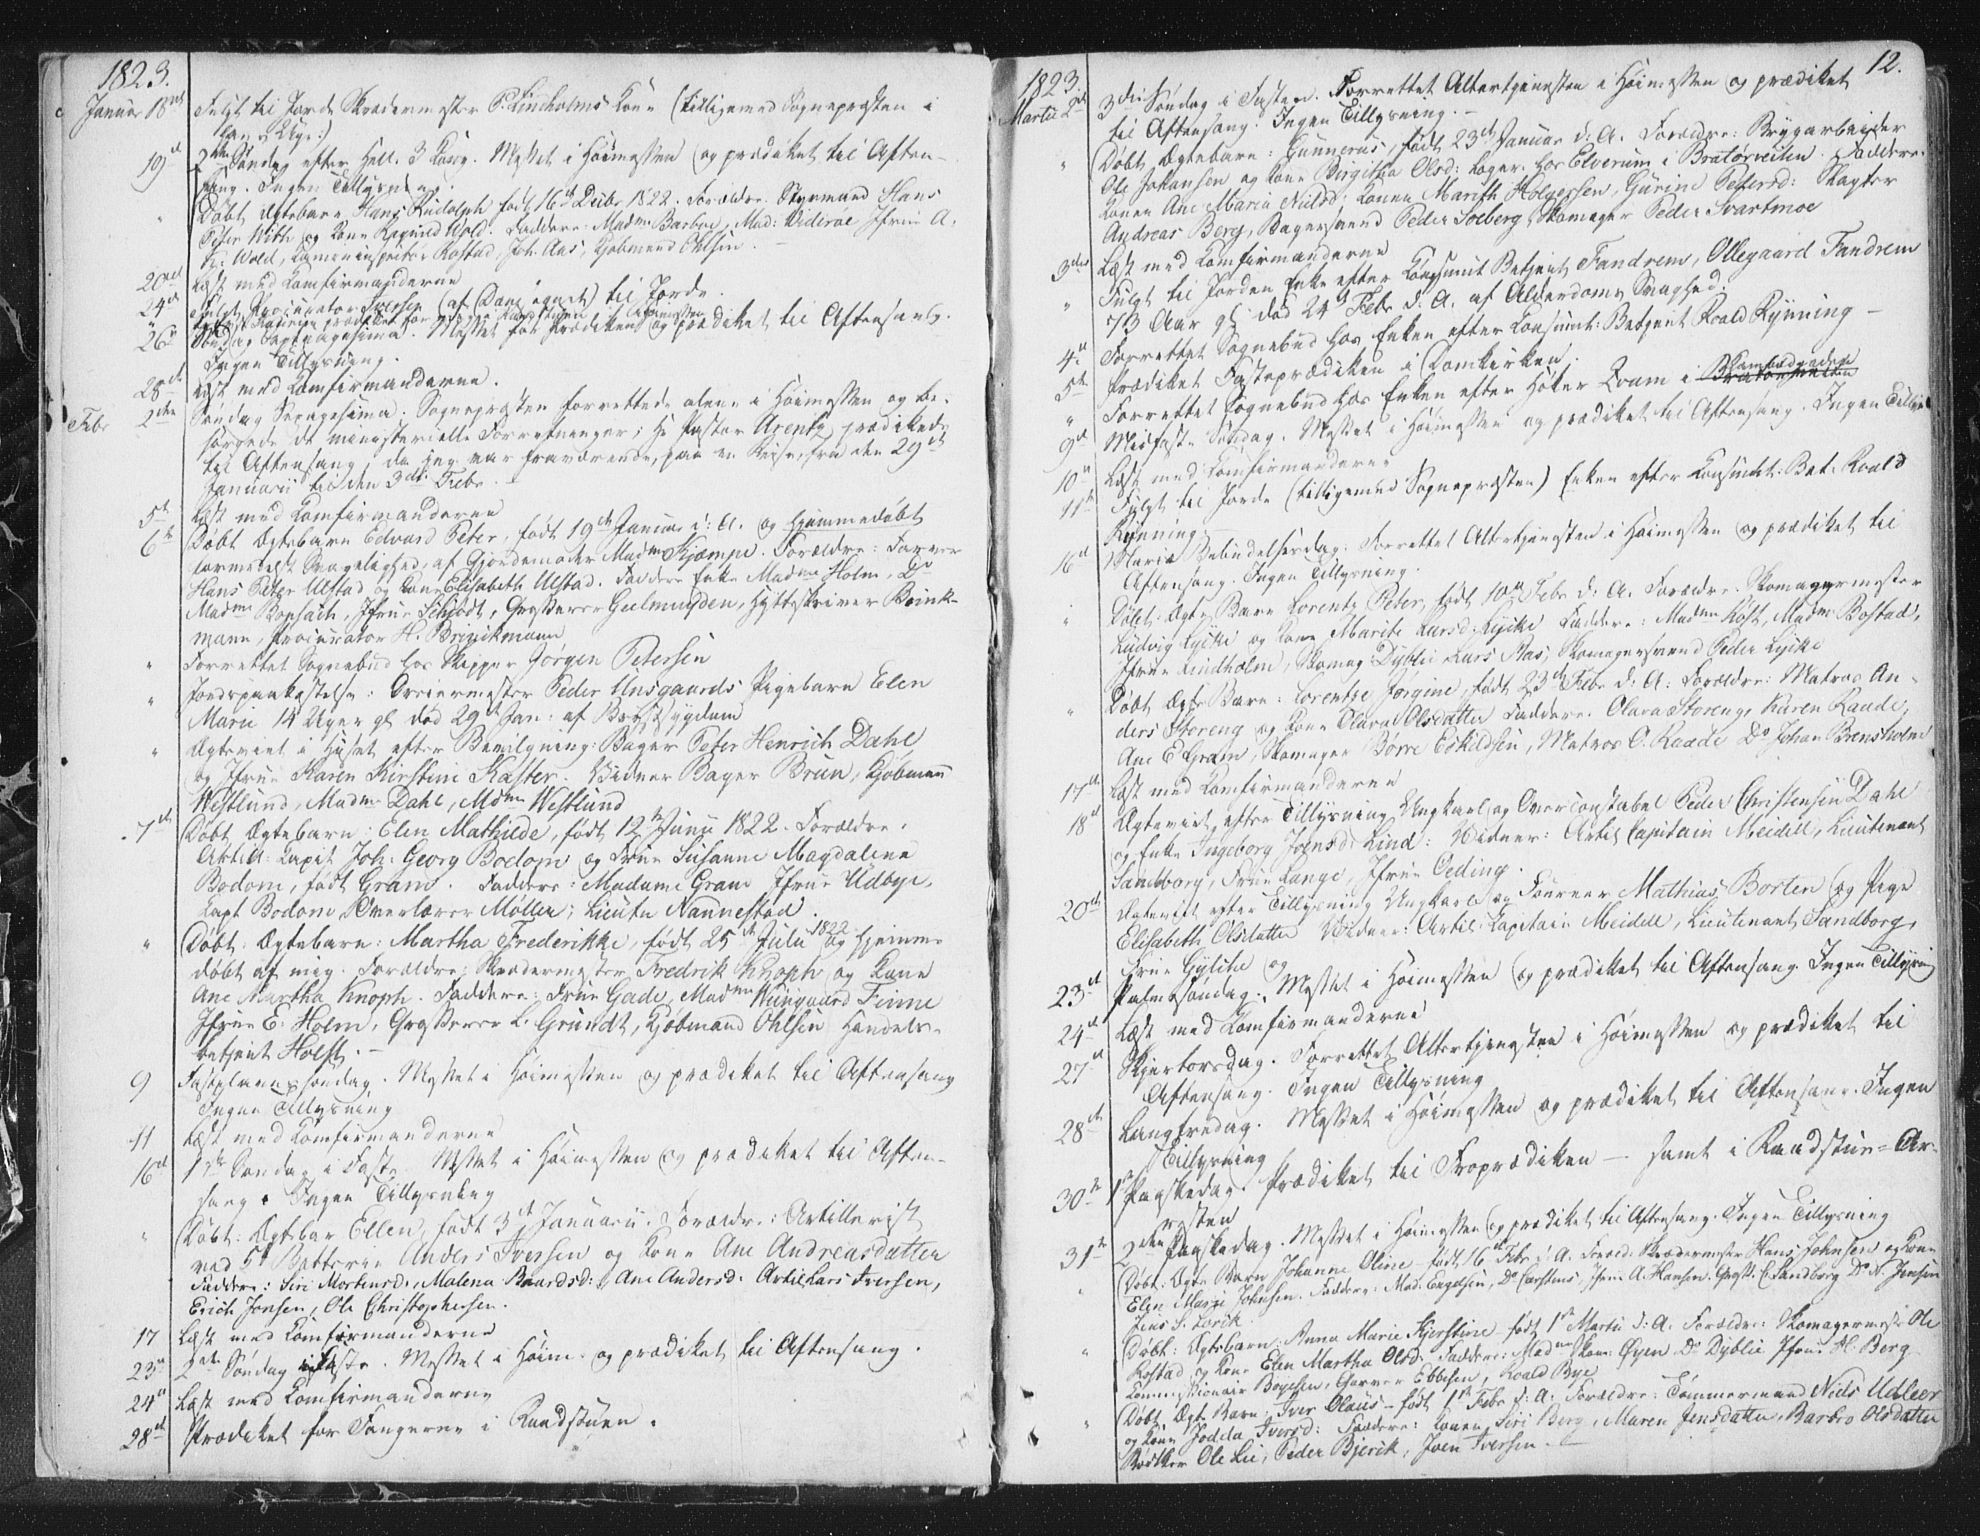 1823.
Januar 18de Fulgt til Jorde Skrædermester P. Lindholms Kone (tilligemed Sognepræsten i
hans Uge:)
19de 2den Søndag efter Hell. 3 Kong. Messet i Høimessen og prædiket til Aften-
sang. Ingen Tillysning.
" Døbt Ægtebarn Hans Rudolph født 16d Decbr 1822. Forældre. Styrmand Hans
Peter With og Kone Wold. Faddere: Madme Barboe, Mad: Widerøe Jfrue A.
Wold, Rostad, Joh. Aas, Kjøbmand Ohlsen.
20de Læst med Confirmanderne
24de Fulgt Procurator Iversen (af Dane egnet) til Jorde.
26de Søndag Septuagesima. Messet før Prædiken og prædiket til Aftensang.
Ingen Tillysning.
28de Læst med Confirmanderne.
Febr 2den Søndag Sexagesima. Sognepræsten forrettede alene i Høimessen og be-
sørgede de ministerielle Forretninger; Hr Pastor Arentz prædikede
til Aftensang, da jeg var fraværende, paa en Reise, fra den 29de
Januarii til den 3die Febr.
5te Læst med Confirmanderne
6te Døbt Ægtebarn Edvard Peter, født 19de Januar d: A. og hjemmedøbt
formedelst Svagelighed, af Gjordemoder Madme Kjempe. Forældre: Farver
Hans Peter Ulstad og Kone Elisabeth Ulstad. Faddere Enke Madme Holm,
Madme Bonsach, Jfrue Schiødt, Grosserer Geelmuyden, Hytteskriver Brink-
mann, Procurator H. Brinckmann
" Forrettet Sognebud hos Skipper Jørgen Petersen
" Jordspaakastelse: Peder Unsgaards Pigebarn Elen
Marie 14 Uger gl død 29de Jan: af Brystsygdom
" Ægteviet i Huset efter Bevilgning: Bager Peter Henrich Dahl
og Jfrue Karen Kirstine Kaster. Vidner Bager Brun, Kjøbmand
Westlund, Madme Dahl, Mdme Westlund
7de Døbt Ægtebarn: Elen Mathilde, født 12te Junii 1822. Forældre.
Artill: Capit Joh: Georg Bodom og Frue Susanne Magdalena
Bodom, født Gram. Faddere: Madame Gram Jfrue Udbye,
Capt Bodom Overlærer Møller; Lieutn Nannestad.
" Døbt: Ægtebarn: Martha Frederikke, født 25de Julii 1822 og hjemme-
døbt af mig. Forældre: Skrædermester Fredrik Knoph og Kone
Ane Martha Knoph. Faddere: Frue Gade, Madme Wensgaard Finne
Jfrue E: Holm, Grosserer L. Grundt, Kjøbmand Ohlsen Handels-
betjent Holst. -
9 Fastelavns søndag. Messet i Høimessen og prædiket til Aftensang
Ingen Tillysning
11 Læst med Confirmanderne
16de 1ste Søndag i Faste. Messet i Høimessen og prædiket til Aften-
sang. Ingen Tillysning
" Døbt: Ægtebar Ellen, født 3de Januarii. Forældre: Artillerist
ved 5te Batterie Anders Iversen og Kone Ane Andreasdatter
Faddere: Siri Mortensd:, Malena Baardsd:, Ane Andersd: Artil Lars Iversen,
Erich Jonsen, Ole Christophersen.
17 Læst med Confirmanderne
23de 2den Søndag i Faste. Messet i Høim. og prædiket til Aftensang.
24de Læst med Confirmanderne
28de Prædiket for Fangerne i Raadstuen.
1823. 12.
Martii 2de 3die Søndag i Fasten. Forrettet Altertjenesten i Høimessen og prædiket
til Aftensang. Ingen Tillysning. -
" Døbt Ægtebarn: Gunnerus, født 23de Januar d: A. Forældre: Brygarbeider
Ole Johansen og Kone Birgitha Olsd: loger. hos Elverum i Bratørveiten. Faddere.
Konen Ane Maria Nielsd, Konen Marith Holgersen, Gurine Petersd: Slagter
Andreas Berg, Bagersvend Peder Soeberg, Skomager Peder Svartmoe
3die Læst med Confirmanderne
" Fulgt til Jorden Enke efter Consumt: Betjent Fandrem, Ollegaard Fandrem
73 Aar gl død 24de Febr d. A. af Alderdoms Svaghed.
4de Forrettet Sognebud hos Enken efter Consumt: Betjent Roald Rynning -
5te Prædiket Fasteprædiken i Domkirken.
" Forrettet Sognebud hos Enken efter Høker Qvam i Bratørveiten
9de Midfaste Søndag. Messet i Høimessen og prædiket til Aftensang. Ingen Tillysn
10de Læst med Confirmanderne
11te Fulgt til Jorde (tilligemed Sognepræsten) Enken efter Consumt: Bet. Roald
Rynning
16de Mariæ Bebudelsesdag: Forrettet Altertjenesten i Høimessen og prædiket til
Aftensang. Ingen Tillysning.
" Døbt: Ægte Barn Lorentz Peter, født 10de Febr d. A. Forældre. Skomagermester
Ludvig Lycke og Kone Marite Larsd: Lycke Faddere: Madme Høst, Madm Rostad,
Jfrue Lindholm, Skomag Dyblie Lars Aas, Skomagersvend Peder Lycke
" Døbt Ægte Barn: Lorentze Jørgine, født 23de Febr d: A: Forældre: Matros An-
ders Storeng og Kone Olava Olsdatter Faddere. Olava Storeng, Karen Raade,
Ane E Gram, Skomager Børre Eskildsen, Matros O. Raade Do Johan Brensholm
17de Læst med Confirmanderne
18de Ægteviet efter Tillysning Ungkarl og Overconstabel Peder Christensen Dahl
og Enke Ingeborg Joensd: Lind: Vidner: Artil Capitain Meidell, Lieutenant
Sandborg, Frue Lange, Jfrue Oeding.
20de Ægteviet efter Tillysning Ungkarl og Fourer Mathias Borten og Pige
Elisabeth Olsdatter Vidner: Artil: Capitain Meidell, Lieutenant Sandborg,
Frue og
23de Palmesøndag. Messet i Høimessen og prædiket til Aftensang. Ingen Tillysning
24de Læst med Confirmanderne
27de Skjertorsdag. Forrettet Altertjenesten i Høimessen og prædiket til
Aftensang. Ingen Tillysning
28de Langfredag. Messet i Høimessen og prædiket til Aftensang. Ingen
Tillysning
30te 1ste Paaskedag. Prædiket til Froprædiken - samt i Raadstue-Ar-
resten
31te 2den Paaskedag. Messet i Høimessen og prædiket til Aftensang. Ingen Tillysning
" Døbt: Ægte Barn Johanne Oline født 16de Febr d. A. Foreld: Skrædermester Hans Johnsen og Kone
Elen Marie Johnsen. Faddere: Mad. Engelsen, Do Carstens, Jfrue A. Hansen. Gross. C. Sandborg Do N. Jensen
Jens S. Lorck.
" Døbt: Ægtebarn: Anna Marie Kjerstine født 1ste Martii d: A. Forældre: Skomagermest: Ole
Rostad og Kone Elen Martha Olsd. Faddere: Madme Øyen Do Dyblie Jfrue H: Berg
Commissionair Boyesen, Garver Ebbesen, Roald Bye
" Døbt. Ægte Barn: Iver Olaus - født 1ste Febr d: A: Forældre: Tømmermand Niels Udleer
og Kone Jodda Iversd: Faddere: Konen Siri Berg, Maren Jensdatter, Barbro Olsdatter
Bødker Ole Lie, Peder Bjerck, Joen Iversen. -